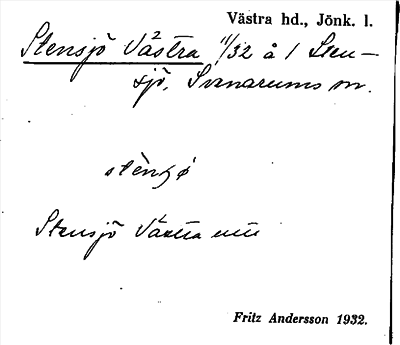 Västra hd., Jönk. l.
Stensjö Västra 11/32 å 1 Sten-
sjö, Svanarums sn.
stènʃø
Stensjö Västra
Fritz Andersson 1932.